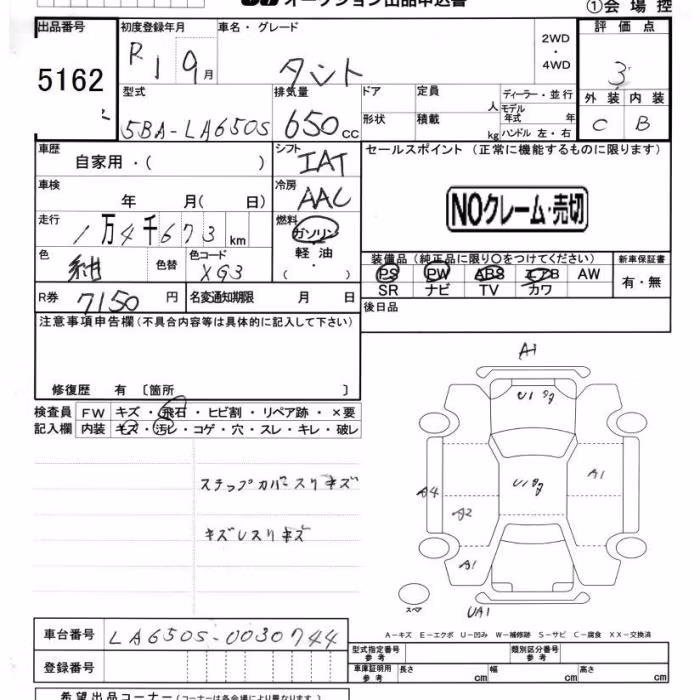 オークション出品申込書
①会場控
出品番号
5162
初度登録年月
R1 9月
車名・グレード
タント
2WD
・
4WD
評価点
3
外装 内装
C B
型式
5BA-LA650S
排気量
650cc
ドア
形状
定員 人
積載 kg
ディーラー・並行
モデル年式 年
ハンドル 左・右
車歴
自家用・( )
シフト
IAT
セールスポイント (正常に機能するものに限ります)
NOクレーム・売切
車検 年 月( 日)
冷房
AAC
走行
1万4千673km
燃料
ガソリン
軽油
( ・ )
色
紺
色替
色コード
XG3
装備品(純正品に限り〇をつけてください)
PS PW ABS エアB AW
SR ナビ TV カワ
新車保証書
有・無
R券 7150円
名変通知期限 月 日
後日品
注意事項申告欄(不具合内容等は具体的に記入して下さい)
修復歴 有 〔箇所 〕
検査員記入欄
FW キズ・飛石・ヒビ割・リペア跡・×要
内装 キズ・汚レ・コゲ・穴・スレ・キレ・破レ
ステップカバースリキズ
A1
A1
A4
A2
A1
UA1
スペア
A-キズ E-エクボ U-凹み W-補修跡 S-サビ C-腐食 XX-交換済
車台番号 LA650S-0030744
登録番号
型式指定番号 参考
類別区分番号 参考
車庫証明用 参考
長さ cm 幅 cm 高さ cm
希望出品コーナー(コーナーは各会場により異なります。)